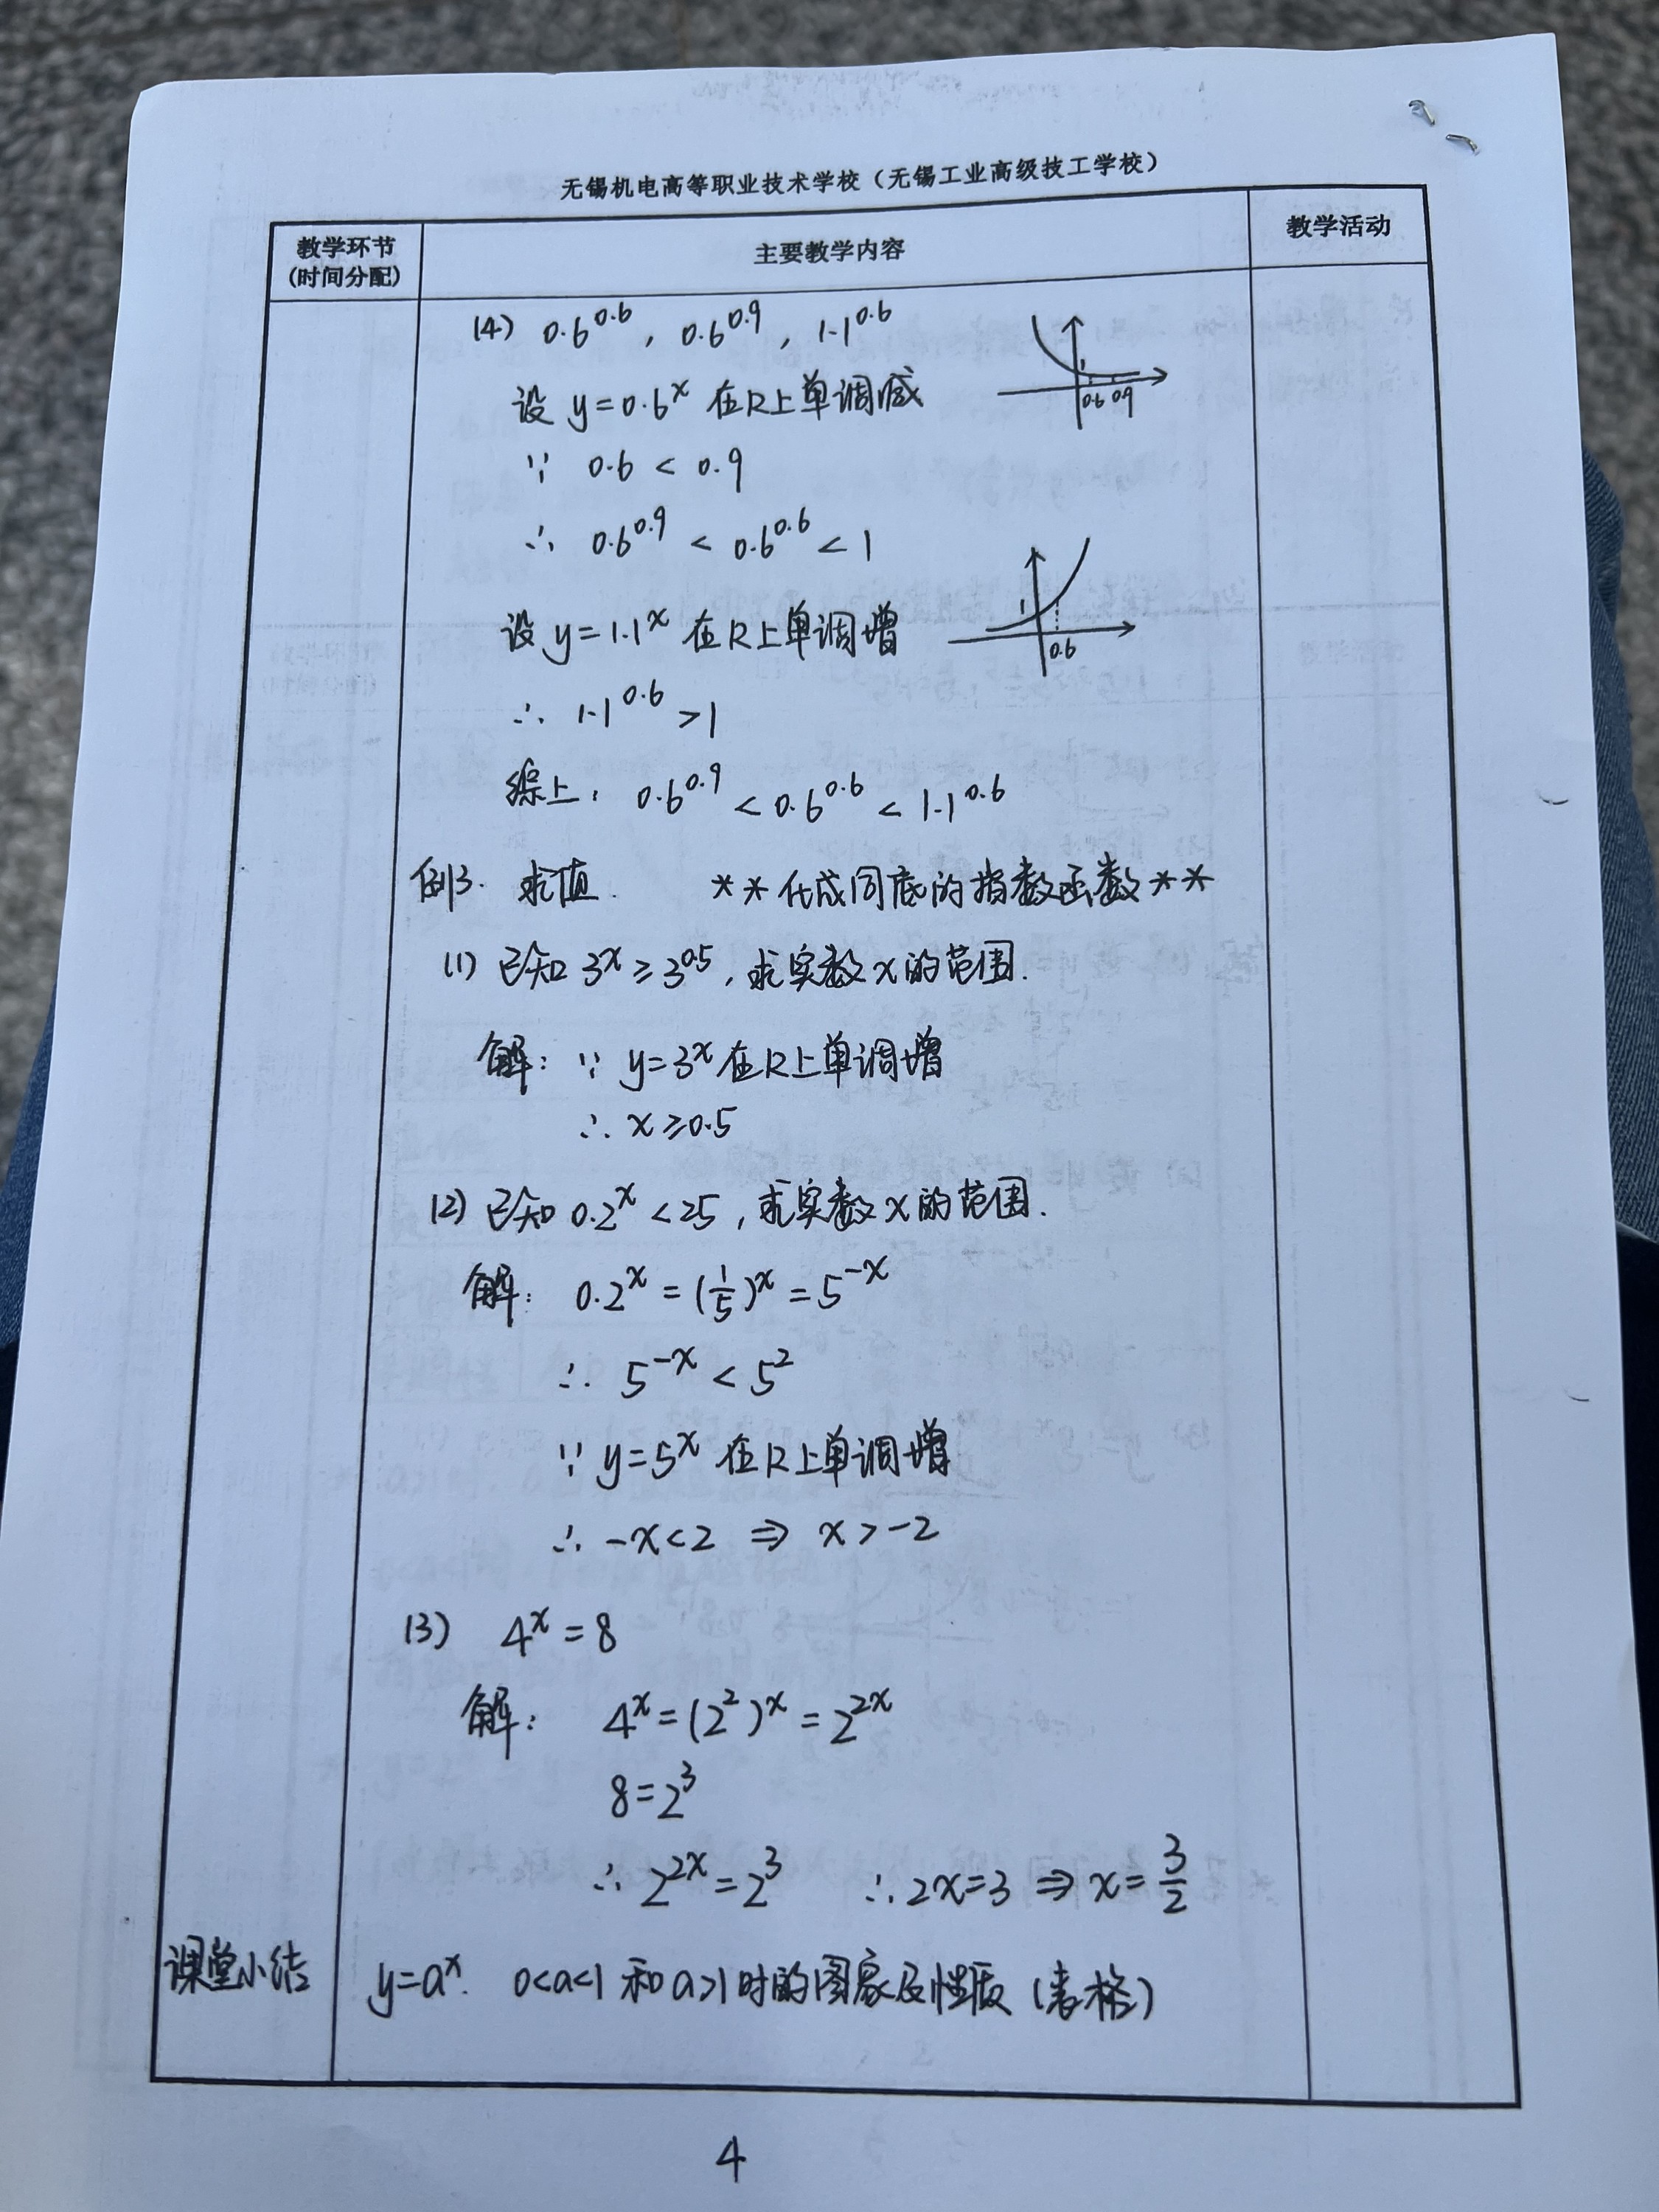 无锡机电高等职业技术学校（无锡工业高级技工学校）
教学环节
(时间分配)
主要教学内容
教学活动
(4) 0.6^0.6 , 0.6^0.9 , 1.1^0.6
1
0.6 0.9
设 y=0.6^x 在R上单调减
∵ 0.6 < 0.9
∴ 0.6^0.9 < 0.6^0.6 < 1
1
0.6
设 y=1.1^x 在R上单调增
∴ 1.1^0.6 >1
综上: 0.6^0.9 < 0.6^0.6 < 1.1^0.6
例3. 求值. **化成同底的指数函数**
(1) 已知 3^x ≥ 3^0.5 , 求实数 x 的范围.
解: ∵ y=3^x 在R上单调增
∴ x ≥ 0.5
(2) 已知 0.2^x < 25 , 求实数 x 的范围.
解: 0.2^x = (1/5)^x = 5^-x
∴ 5^-x < 5^2
∵ y=5^x 在R上单调增
∴ -x<2 ⇒ x>-2
(3) 4^x = 8
解: 4^x = (2^2)^x = 2^2x
8=2^3
∴ 2^2x = 2^3 ∴ 2x=3 ⇒ x=3/2
课堂小结
y=a^x. 0<a<1 和 a>1 时的图象及性质 (表格)
4